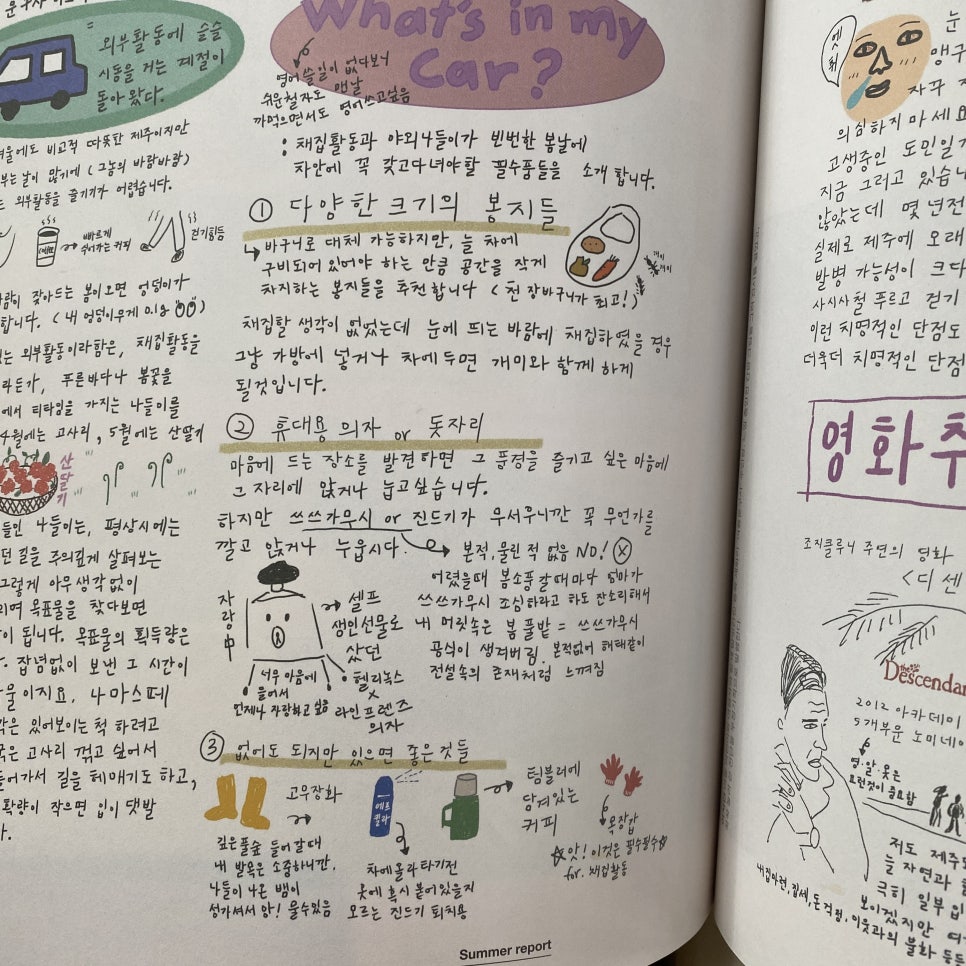 외부활동에 슬슬
시동을 거는 계절이
돌아왔다.
겨울에도 비교적 따뜻한 제주이지만
부는 날이 많기에 (그놈의 바람바람)
외부활동을 즐기기가 어렵습니다.
COFFEE
빠르게
식어가는 커피
걷기힘듬
잦아드는 봄이오면 엉덩이가
합니다. (내 엉덩이무게 0.1g
있는 외부활동이라함은, 채집활동을
라든가, 푸른바다나 봄꽃을
에서 티타임을 가지는 나들이를
4월에는 고사리, 5월에는 산딸기
산딸기
나들이는, 평상시에는
길을 주의깊게 살펴보는
그렇게 아무 생각 없이
목표물을 찾다보면
됩니다. 목표물의 획득량은
잡념없이 보낸 그 시간이
이지요, 나마스떼
있어보이는 척 하려고
고사리 꺾고 싶어서
들어가서 길을 헤매기도 하고,
확량이 작으면 입이 댓발
What's in my
Car?
영어 쓸일이 없다보니
쉬운철자도 맨날
까먹으면서도 영어쓰고싶음
: 채집활동과 야외나들이가 빈번한 봄날에
차안에 꼭 갖고다녀야할 필수품들을 소개 합니다.
① 다양한 크기의 봉지들
바구니로 대체 가능하지만, 늘 차에
구비되어 있어야 하는 만큼 공간을 작게
차지하는 봉지들을 추천합니다 (천 장바구니가 최고!)
개미
개미
채집할 생각이 없었는데 눈에 띄는 바람에 채집하였을 경우
그냥 가방에 넣거나 차에 두면 개미와 함께 하게
될것입니다.
② 휴대용 의자 or 돗자리
마음에 드는 장소를 발견하면 그 풍경을 즐기고 싶은 마음에
그 자리에 앉거나 눕고싶습니다.
하지만 쓰쓰가무시 or 진드기가 무서우니깐 꼭 무언가를
깔고 앉거나 눕읍시다.
본적, 물린 적 없음 NO! ⓧ
어렸을때 봄소풍갈때마다 엄마가
쓰쓰가무시 조심하라고 하도 잔소리해서
내 머릿속은 봄 풀밭 = 쓰쓰가무시
공식이 생겨버림. 본적없어 해태같이
전설속의 존재처럼 느껴짐
자랑중
셀프
생인선물로
샀던
헬리녹스
x
라인프렌즈
의자
너무 마음에
들어서
언제나 자랑하고 싶음
③ 없어도 되지만 있으면 좋은것들
고무장화
깊은 풀숲 들어갈때
내 발목은 소중하니깐.
나들이 나온 뱀이
성가셔서 앙! 물수있음
에프킬라
차에 올라타기전
옷에 혹시 붙어있을지
모르는 진드기 퇴치용
텀블러에
담겨있는
커피
목장갑
☆앗! 이것은 필수필수☆
for. 채집활동
Summer report
엣취
눈
앵구
자꾸
의심하지 마세요
고생중인 도민일
지금 그러고 있습니
않았는데 몇 년전
실제로 제주에 오래
발병 가능성이 크다
사시사철 푸르고 걷기
이런 치명적인 단점도
더욱더 치명적인 단점
영화
조지클루니 주연의 영화
<디 센
the Descendan
2012 아카데미
5개부문 노미네이
영.알.못은
요런것이 중요함
저도 제주도
늘 자연과
극히 일부입
보이겠지만
내집마련, 집세, 돈 걱정, 이웃과의 불화 등등